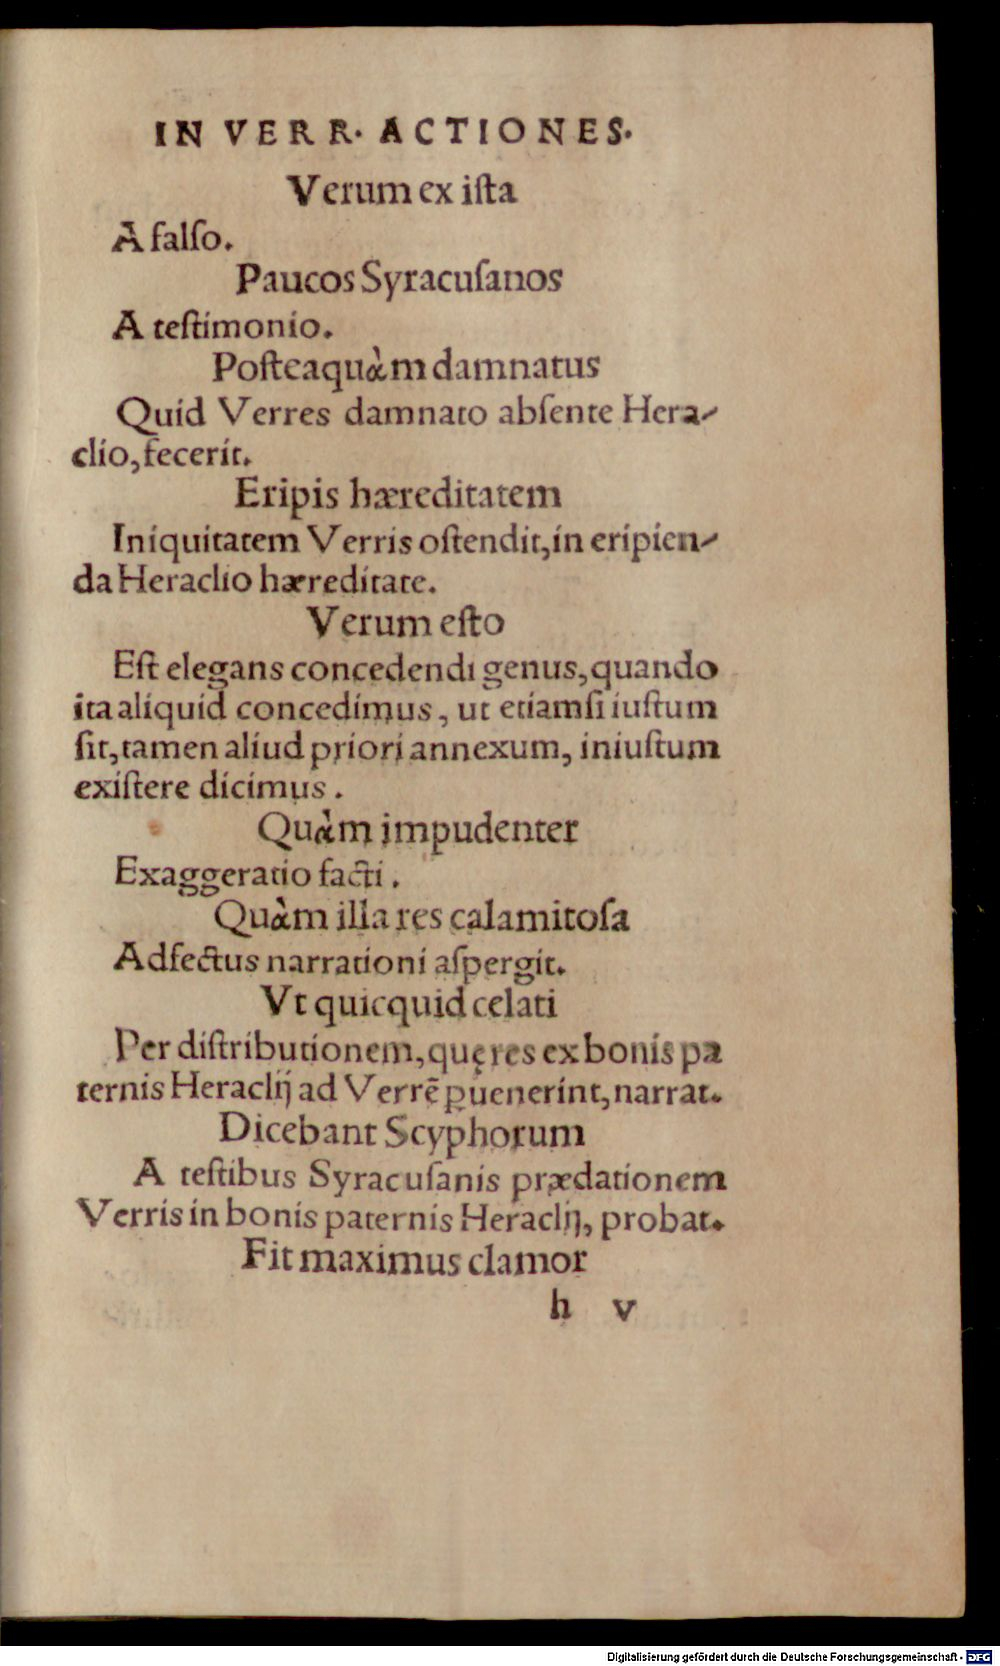 IN VERR. ACTIONES.
Verum ex iſta
A falſo.
Paucos Syracuſanos
A teſtimonio.
Poſteaquàm damnatus
Quid Verres damnato abſente Hera-
clio, fecerit.
Eripis hæreditatem
Iniquitatem Verris oſtendit, in eripien-
da Heraclio hæreditate.
Verum eſto
Eſt elegans concedendi genus, quando
ita aliquid concedimus, ut etiamſi iuſtum
ſit, tamen aliud priori annexum, iniuſtum
exiſtere dicimus.
Quàm impudenter
Exaggeratio facti.
Quàm illa res calamitoſa
Adfectus narrationi aſpergit.
Vt quicquid celati
Per diſtributionem, quę res ex bonis pa
ternis Heraclij ad Verrē ꝑuenerint, narrat.
Dicebant Scyphorum
A teſtibus Syracuſanis prædationem
Verris in bonis paternis Heraclij, probat.
Fit maximus clamor
h v
Digitalisierung gefördert durch die Deutsche Forschungsgemeinschaft - DFG